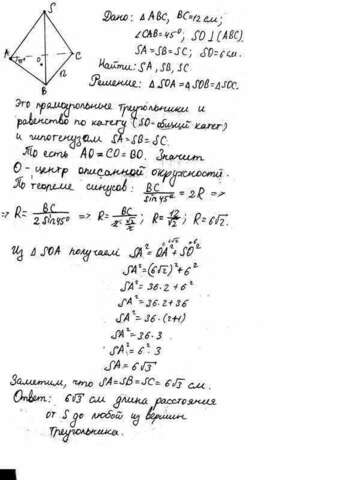 S
Дано: △ABC, BC=12см;
∠CAB=45°; SO⊥(ABC).
SA=SB=SC; SO=6см.
Найти: SA, SB, SC
Решение: △SOA=△SOB=△SOC.
A 45° O C
12
B
Это прямоугольные треугольники и
равенство по катету (SO-общий катет)
и гипотенузам SA=SB=SC.
То есть AO=CO=BO. Значит
O-центр описанной окружности.
По теореме синусов: BC/sin45° = 2R =>
=> R= BC/2sin45° => R= BC/2·√2/2; R= 12/√2; R=6√2.
Из △SOA получаем SA²=OA²+SO²
SA²=(6√2)²+6²
SA²=36·2+6²
SA²=36·2+36
SA²=36·(2+1)
SA²=36·3
SA²=6²·3
SA=6√3
Заметим, что SA=SB=SC=6√3 см.
Ответ: 6√3 см длина расстояния
от S до любой из вершин
треугольника.